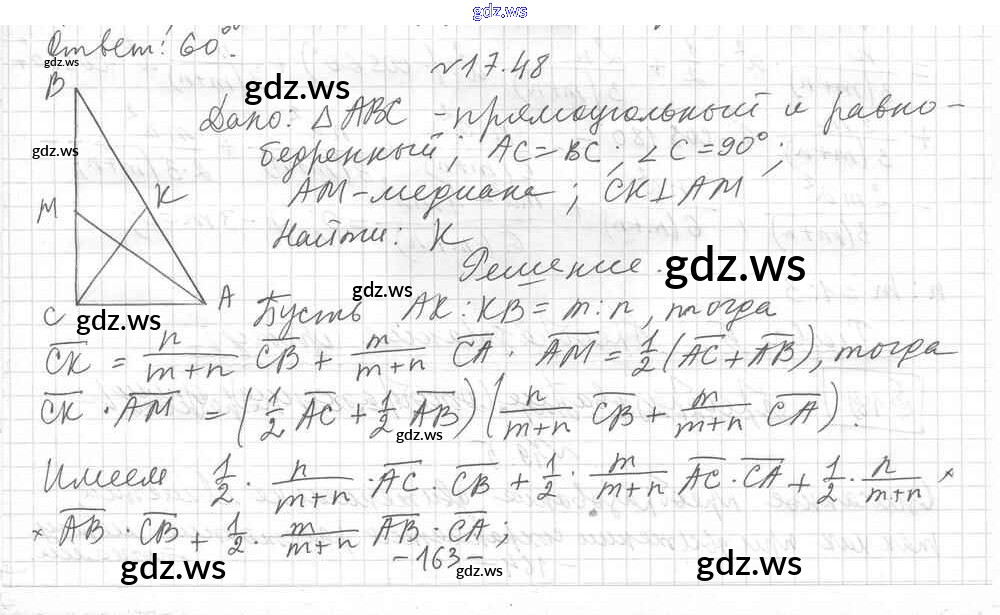 gdz.ws
Ответ: 60°.
gdz.ws
№17.48
B
gdz.ws
Дано: △ABC - прямоугольный и равно-
gdz.ws
бедренный; AC=BC; ∠C=90°;
M
K
AM-медиана; CK⊥AM
Найти: K
Решение.
gdz.ws
gdz.ws
C
A
gdz.ws
Пусть AK:KB=m:n, тогда
CK = n/(m+n) CB + m/(m+n) CA. AM = 1/2 (AC+AB), тогда
CK · AM = (1/2 AC + 1/2 AB) (n/(m+n) CB + m/(m+n) CA).
gdz.ws
Имеем 1/2 · n/(m+n) · AC CB + 1/2 · m/(m+n) AC · CA + 1/2 · n/(m+n) ×
× AB · CB + 1/2 · m/(m+n) AB · CA;
-163-
gdz.ws
gdz.ws
gdz.ws